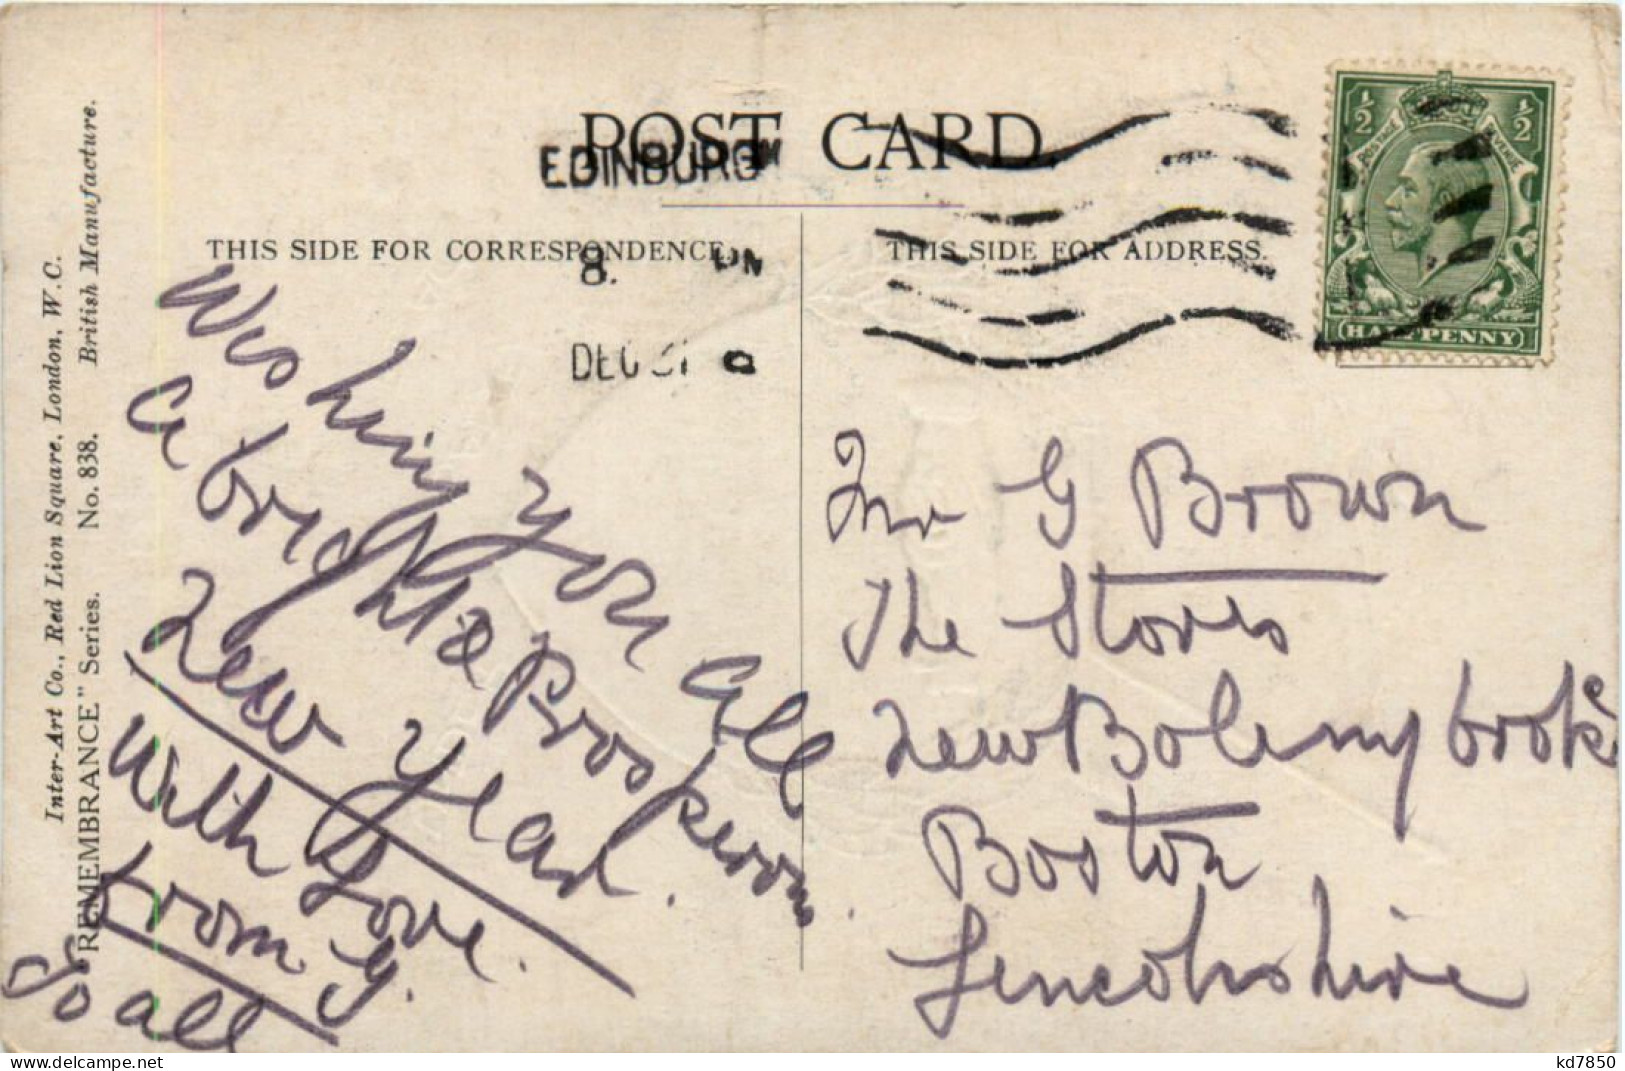 POST CARD.
EDINBURGH
THIS SIDE FOR CORRESPONDENCE.
THIS SIDE FOR ADDRESS.
8. PM
DEC 31
½ ½
POSTAGE REVENUE
HALFPENNY
Inter-Art Co., Red Lion Square, London, W.C.
"REMEMBRANCE" Series. No. 838. British Manufacture.
Wishing you all
a bright & Prosperous
New Year.
With Love.
from G.
To all
G Brown
The Stores
New Bolingbroke
Boston
Lincolnshire
delcampe.net
kd7850